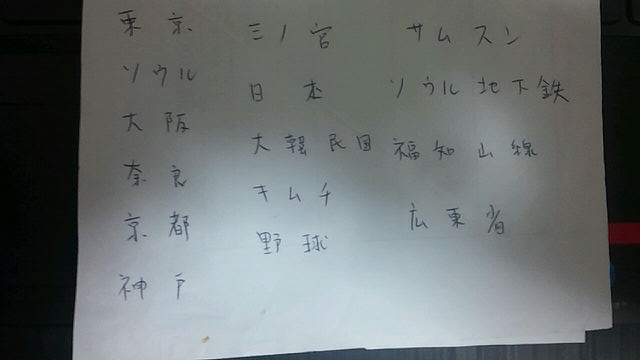 東京
ソウル
大阪
奈良
京都
神戸
三ノ宮
日本
大韓民国
キムチ
野球
サムスン
ソウル地下鉄
福知山線
広東省